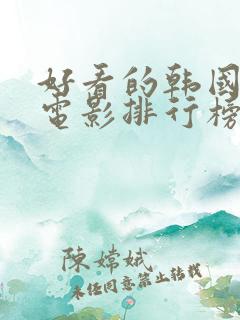 好看的韩国
電影排行榜
陳嫦娥
未经同意禁止转载